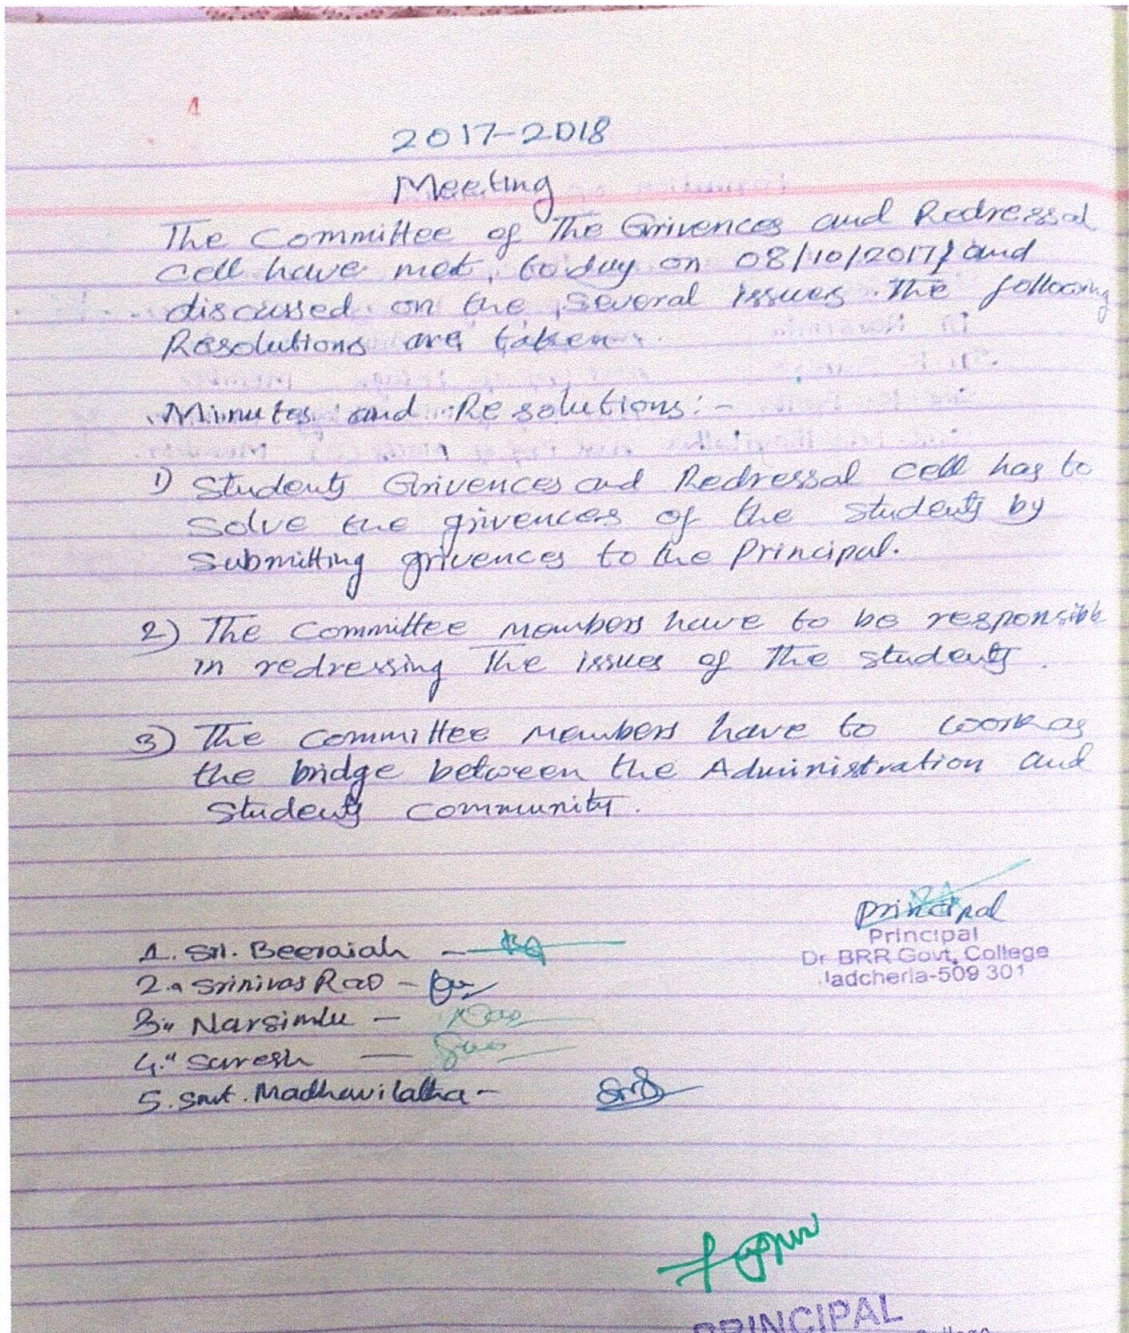 2017-2018
Meeting
The Committee of The Grivences and Redressal
Cell have met, to day on 08/10/2017 and
discussed on the several issues. The following
Resolutions are taken.
Minutes and Resolutions:-
1) Students Grivences and Redressal Cell has to
Solve the grivences of the students by
Submitting grivences to the Principal.
2) The Committee members have to be responsible
in redressing the issues of the students.
3) The Committee members have to work as
the bridge between the Administration and
Students Community.
Principal
Principal
Dr BRR Govt, College
Jadcherla-509 301
1. Sri. Beeraiah -
2. " Srinivas Rao -
3. " Narsimlu -
4. " Suresh -
5. Smt. Madhavilatha -
PRINCIPAL
College